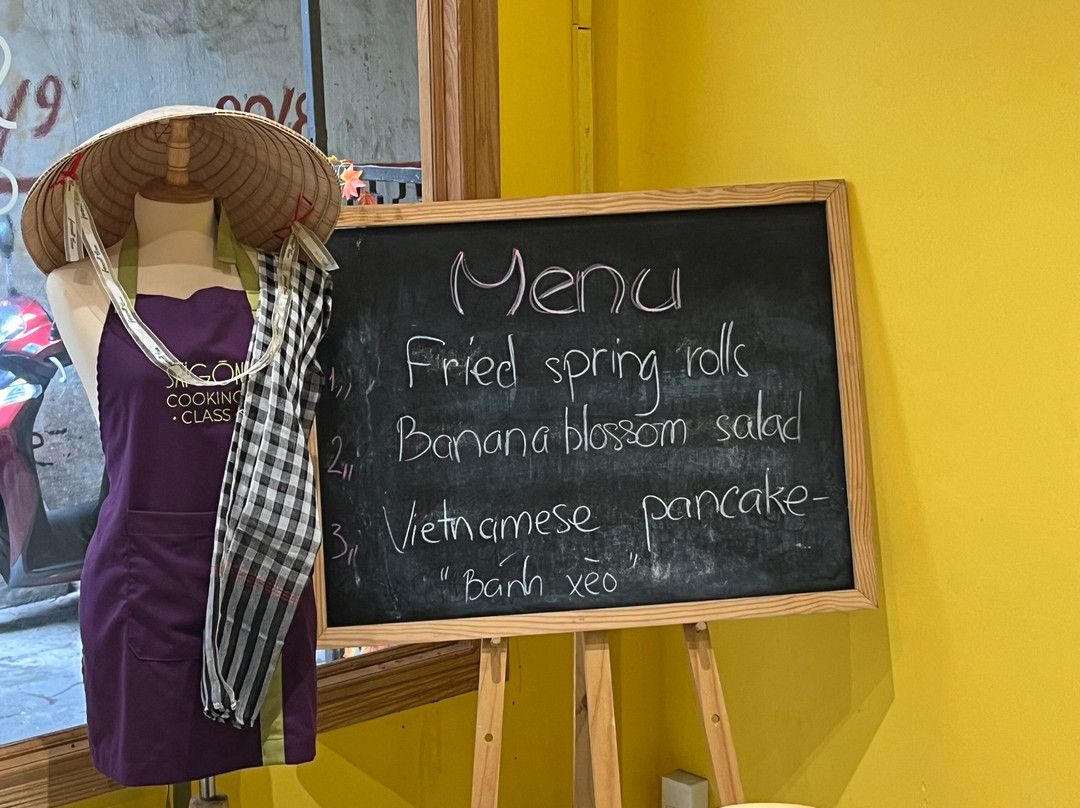 SAIGON
COOKING
• CLASS
Menu
1,, Fried spring rolls
2,, Banana blossom salad
3,, Vietnamese pancake-
"Bánh xèo"